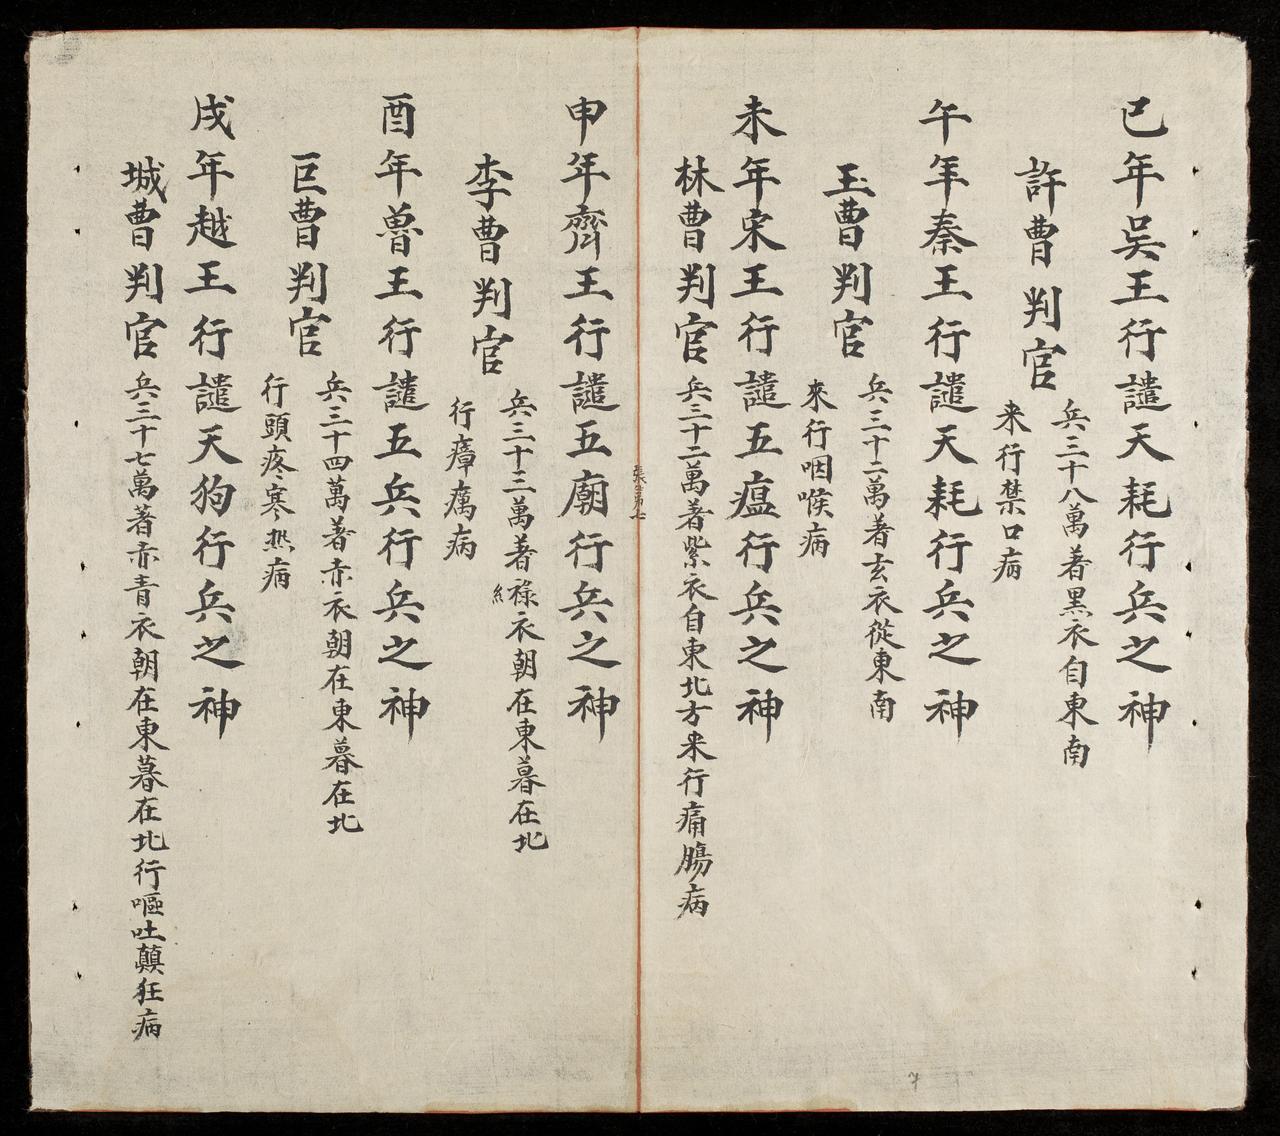 巳年吴王行譴天耗行兵之神
許曹判官
兵三十八萬著黑衣自東南
来行禁口病
午年秦王行譴天耗行兵之神
玉曹判官
兵三十二萬著玄衣從東南
來行咽喉病
未年宋王行譴五瘟行兵之神
林曹判官兵三十二萬著紫衣自東北方来行痛腸病
張第七
申年齊王行譴五廟行兵之神
李曹判官
兵三十三萬著祿衣朝在東暮在北
糹
行瘴癘病
酉年曽王行譴五兵行兵之神
巨曹判官
兵三十四萬著赤衣朝在東暮在北
行頭疼寒热病
戌年越王行譴天狗行兵之神
城曹判官兵三十七萬著赤青衣朝在東暮在北行嘔吐顛狂病
7